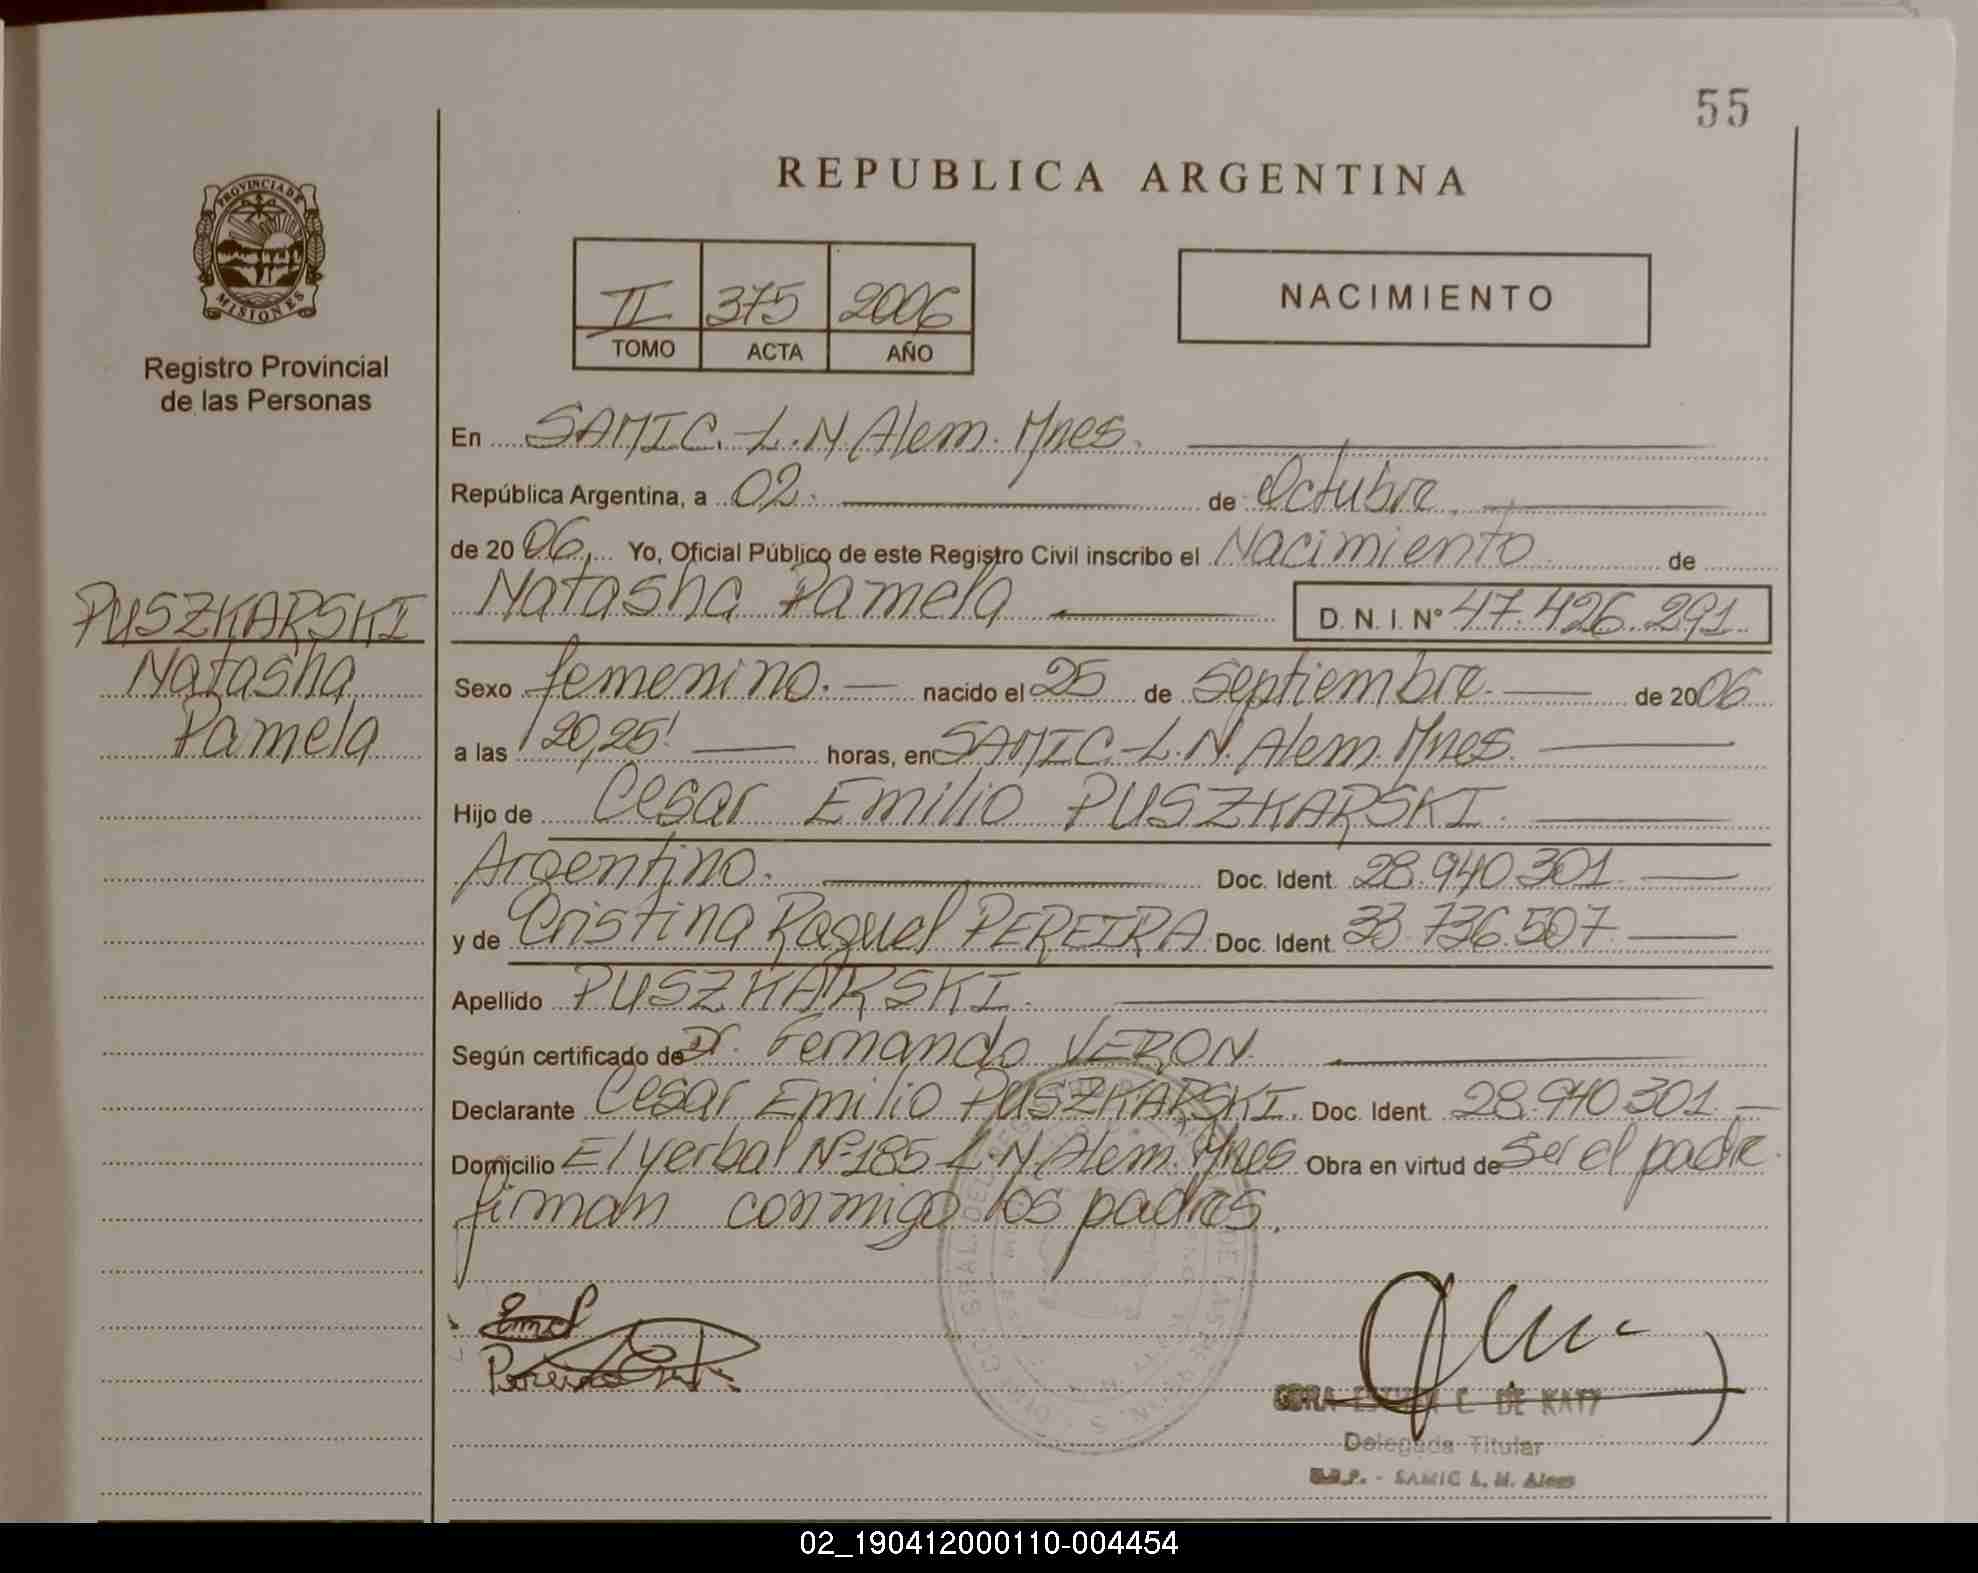 55
REPUBLICA ARGENTINA
PROVINCIA DE
MISIONES
Registro Provincial
de las Personas
II 375 2006
TOMO ACTA AÑO
NACIMIENTO
En SAMIC.-L.N.Alem.Mnes.
República Argentina, a 02. de Octubre.
de 20 06, Yo, Oficial Público de este Registro Civil inscribo el Nacimiento de
PUSZKARSKI
Natasha
Pamela
Natasha Pamela D. N. I. Nº 47.426.291
Sexo femenino. nacido el 25 de Septiembre. de 20 06
a las 20,25' horas, en SAMIC-L.N.Alem.Mnes.
Hijo de Cesar Emilio PUSZKARSKI.
Argentino. Doc. Ident. 28.940.301
y de Cristina Raquel PEREIRA Doc. Ident. 33.736.507
Apellido PUSZKARSKI.
Según certificado de Dr. Fernando VERON.
Declarante Cesar Emilio PUSZKARSKI. Doc. Ident. 28.940.301
Domicilio El yerbal Nº 185 L.N.Alem.Mnes Obra en virtud de ser el padre.
firman conmigo los padres.
C. DE KATZ
Delegada Titular
SAMIC L. N. Alem
02_190412000110-004454